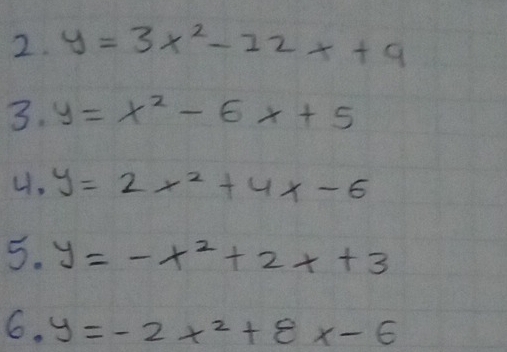 2. y = 3x² - 12x + 9
3. y = x² - 6x + 5
4. y = 2x² + 4x - 6
5. y = -x² + 2x + 3
6. y = -2x² + 8x - 6